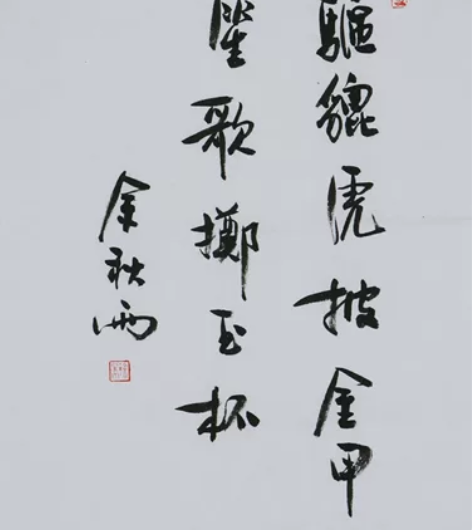 驅貔虎披金甲
笙歌擲玉杯
余秋雨